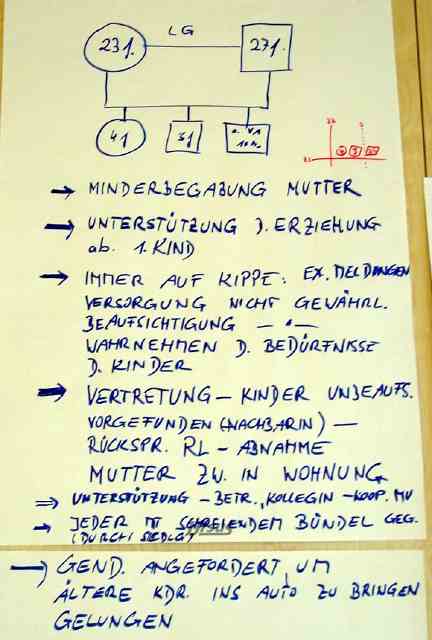 LG
23J. 27J.
4J 3J
→ MINDERBEGABUNG MUTTER
→ UNTERSTÜTZUNG D. ERZIEHUNG
ab. 1. KIND
→ IMMER AUF KIPPE: EX. MELDUNGEN
VERSORGUNG NICHT GEWÄHRL.
BEAUFSICHTIGUNG – " –
WAHRNEHMEN D. BEDÜRFNISSE
D. KINDER
→ VERTRETUNG – KINDER UNBEAUFS.
VORGEFUNDEN (NACHBARIN) –
RÜCKSPR. RL – ABNAHME
MUTTER ZW. IN WOHNUNG
⇒ UNTERSTÜTZUNG – BETR., KOLLEGIN – KOOP. MU
→ JEDER MIT SCHREIENDEM BÜNDEL GEG.
(DURCH SIEDLG)
→ GEND. ANGEFORDERT, UM
ÄLTERE KDR. INS AUTO ZU BRINGEN
GELUNGEN